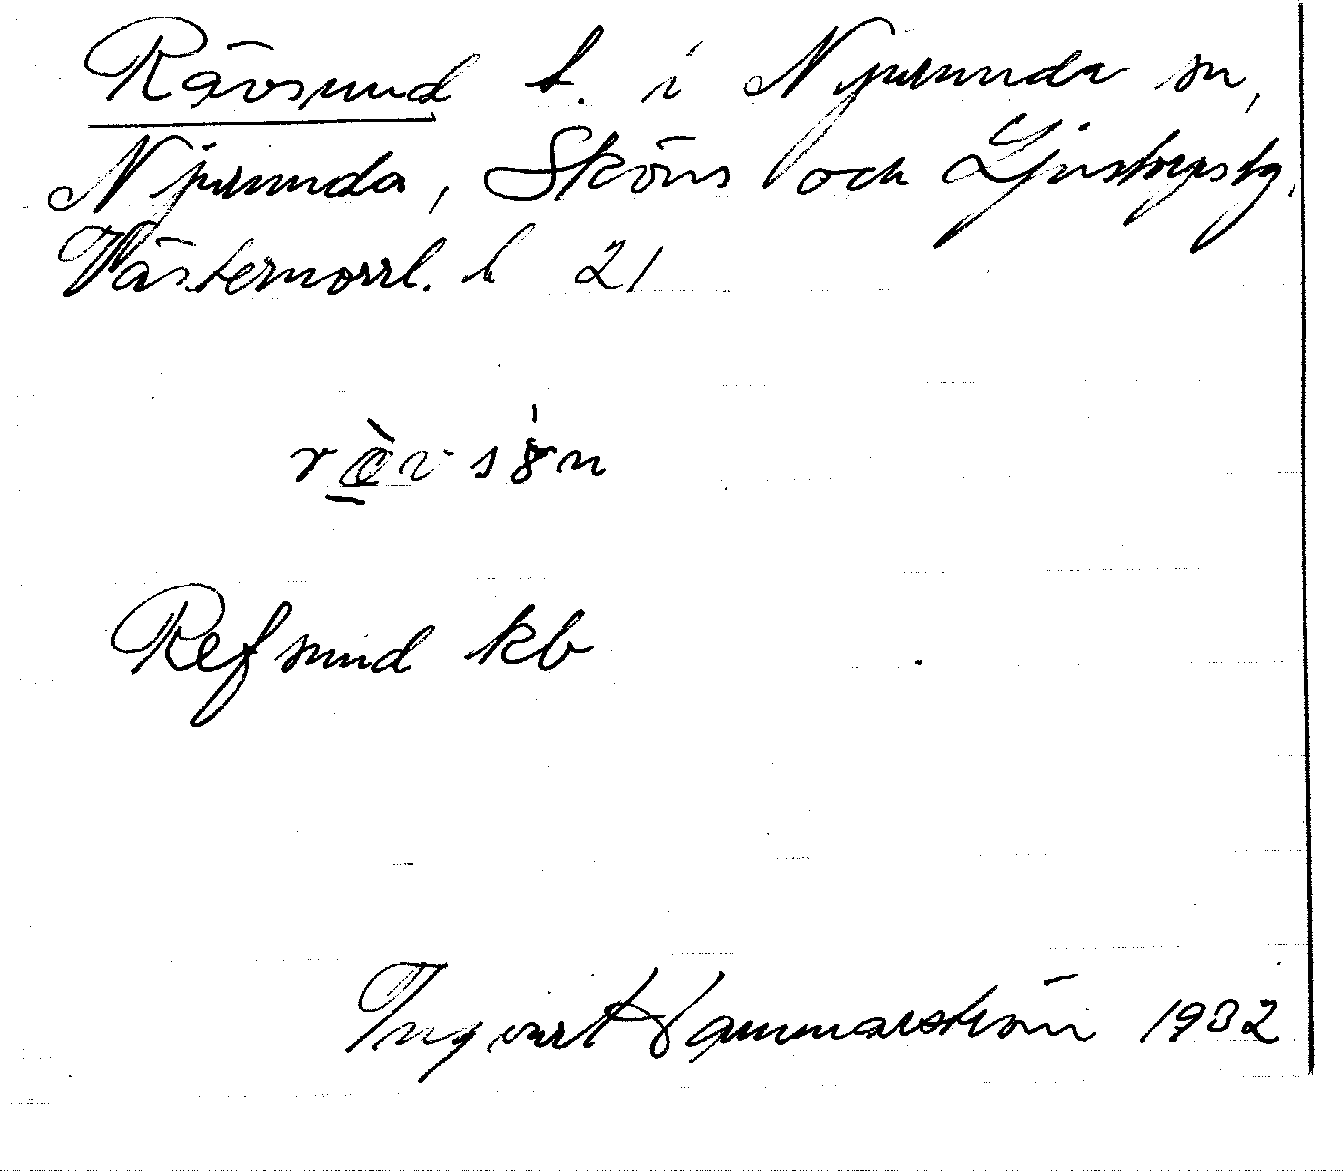 Rävsund b. i Njurunda sn,
Njurunda, Sköns och Ljustorps tg,
Västernorrl. l 21
Refsund kb
Ingvart Hammarström 1932